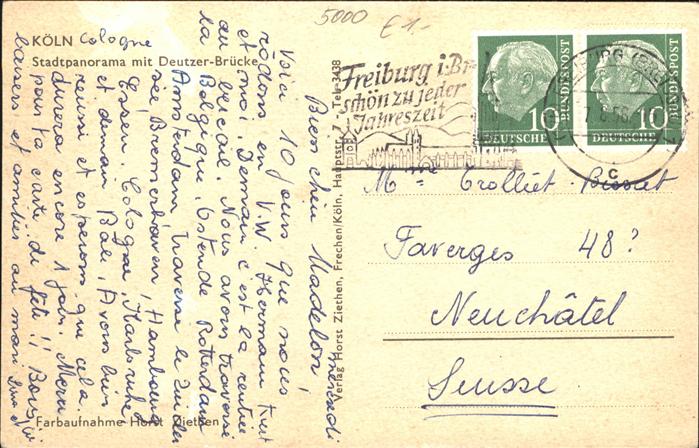 5000 £1-
KÖLN Cologne
Stadtpanorama mit Deutzer-Brücke
Freiburg i. Br
schön zu jeder
Jahreszeit
10 DEUTSCHE BUNDESPOST
10 DEUTSCHE BUNDESPOST
c
Mme Trolliet-Bisset
Faverges 48?
Neuchâtel
Suisse
Verlag Horst Ziethen, Frechen/Köln, Hauptstr. 7 Tel. 3438
Mercredi
Bien chère Madelon,
Voilà 10 jours que nous
rôdons en V.W. Hermann Kurt
et moi. Demain c'est la rentrée
au bercail. Nous avons traversé
la Belgique, Ostende Rotterdam
Amsterdam, traversé le
Bremerhaven, Hambourg
Essen, Cologne, Karlsruhe
et demain Bâle. Avons bien
réussi et espérons que cela
durera encore 1 jour. Merci
pour ta carte de fête!! Bons
baisers et amitiés au mari
Farbaufnahme Horst Ziethen